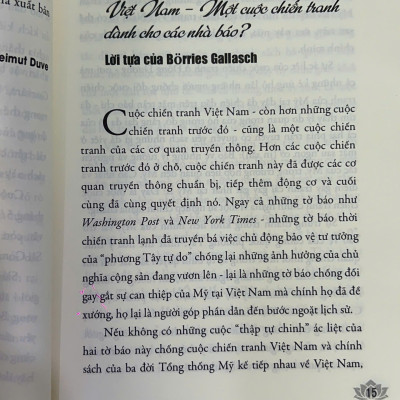 á xuất bản
eimut Duve
Việt Nam – Một cuộc chiến tranh
dành cho các nhà báo?
Lời tựa của Börries Gallasch
Cuộc chiến tranh Việt Nam - còn hơn những cuộc
chiến tranh trước đó - cũng là một cuộc chiến
tranh của các cơ quan truyền thông. Hơn các cuộc chiến
tranh trước đó ở chỗ, cuộc chiến tranh này đã được các cơ
quan truyền thông chuẩn bị, tiếp thêm động cơ và cuối
cùng đã cùng quyết định nó. Ngay cả những tờ báo như
Washington Post và New York Times - những tờ báo thời
chiến tranh lạnh đã truyền bá việc chủ động bảo vệ tư tưởng
của “phương Tây tự do” chống lại những ảnh hưởng của chủ
nghĩa cộng sản đang vươn lên - lại là những tờ báo chống đối
gay gắt sự can thiệp của Mỹ tại Việt Nam mà chính họ đã đề
xướng, họ lại là người góp phần dẫn đến bước ngoặt lịch sử.
Nếu không có những cuộc “thập tự chinh” ác liệt của
hai tờ báo này chống cuộc chiến tranh Việt Nam và chính
sách của ba đời Tổng thống Mỹ kế tiếp nhau về Việt Nam,
15